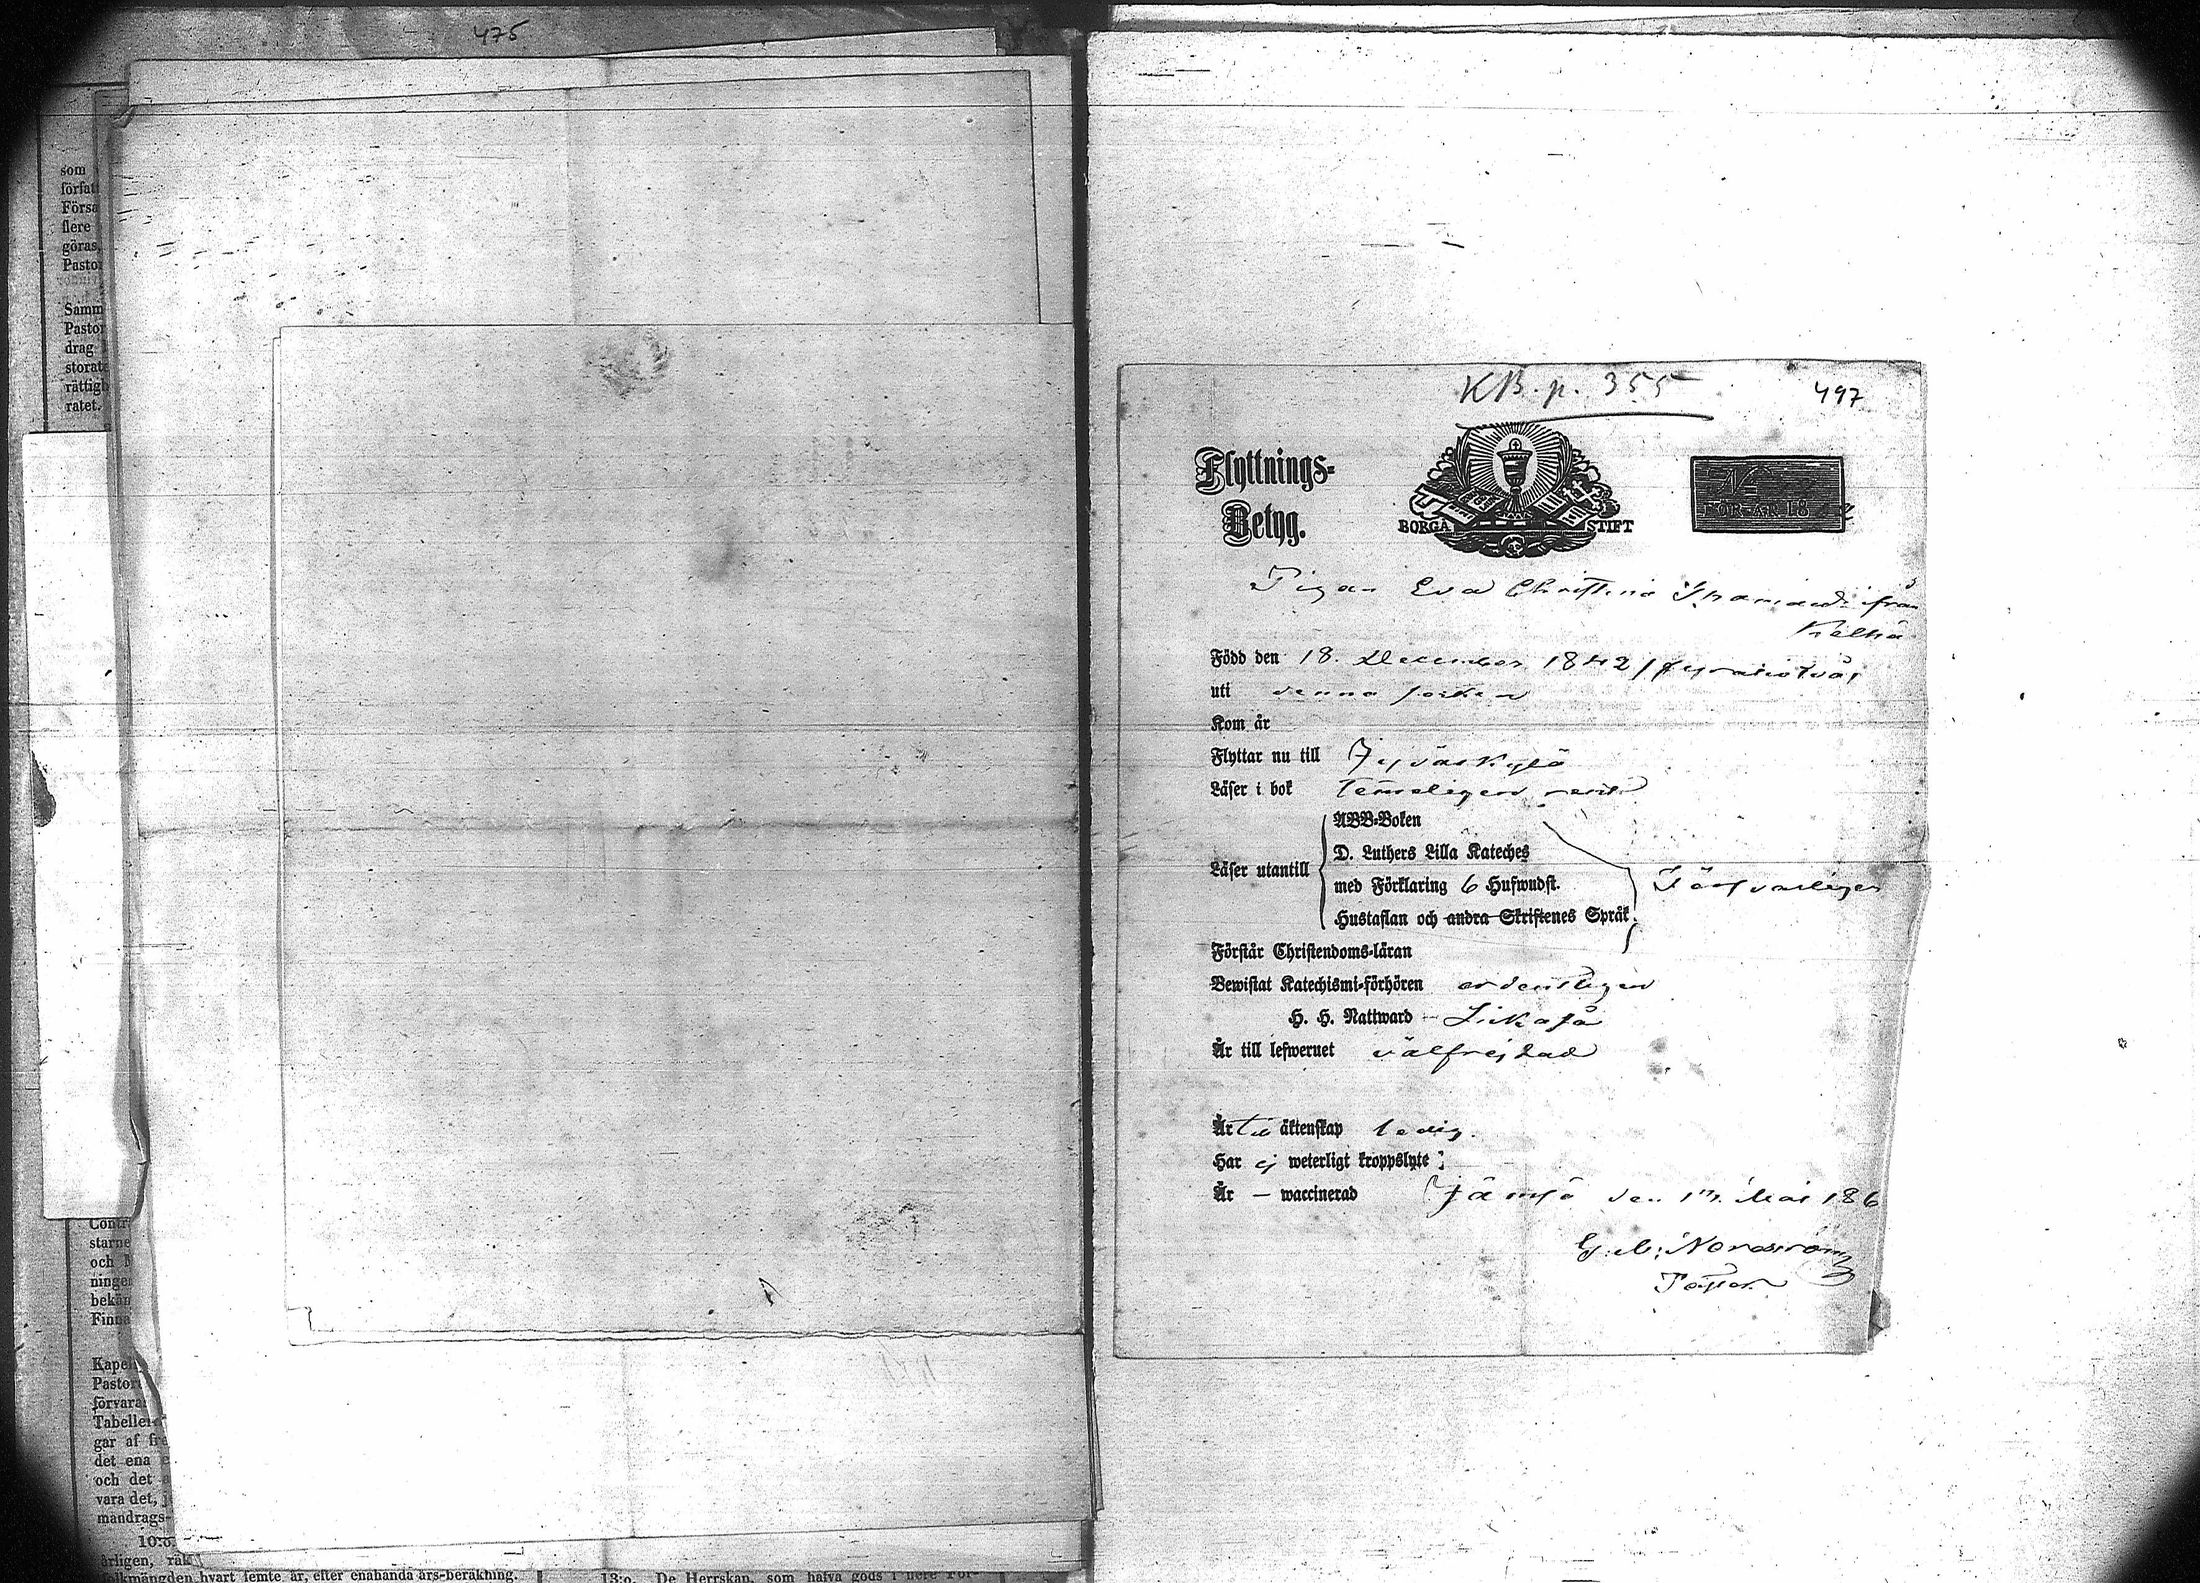 475
som
Förså
flere
göras,
Pastor
Samm
Pastor
drag
storat
rättigh
ratet.
Contr
starne
och
ninge
bekän
Finna
Kapel
Pastor
förvara
Tabeller
gar af fre
det ena
och det
vara det,
mandrags-
10:o.
årligen, räk
folkmängden hvart femte år, efter enahanda års-beräkning.
13:o. De Herrskap, som hafva gods i flere För-
KB. p. 355
497
Flyttnings-
Betyg.
BORGÅ STIFT
No
FÖR ÅR 18
Pigan Eva Christina från
Född den 18. December 1842 / fyratiotvå /
uti denna socken
Kom år
Flyttar nu till Jyväskylä
Läser i bok temmeligen rent
ABB-Boken
D. Luthers Lilla Kateches
Läser utantill
med Förklaring 6 Hufwudst.
Hustaflan och andra Skriftenes Språk
Försvarligen
Förstår Christendoms-läran
Bewistat Katechismi-förhören ordentligen
H. H. Nattward Likaså
Är till lefwernet välfrejdad
Är till äktenskap ledig.
Har ej weterligt kroppslyte;
Är — waccinerad
Jämsä den Maj 186
Nordström
Pastor